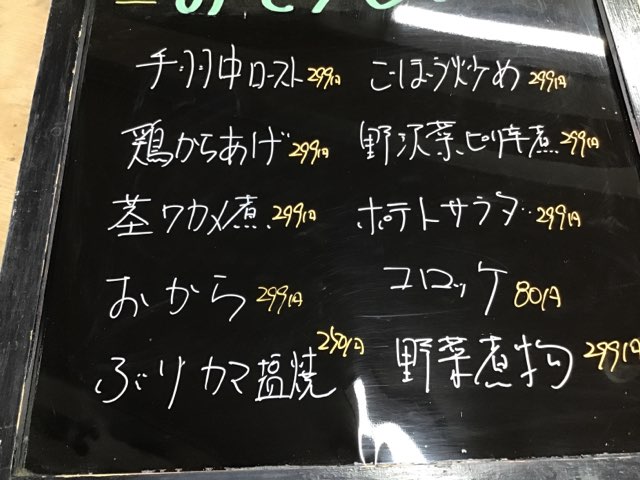 手羽中ロースト 299円
ごぼう炒め 299円
鶏からあげ 299円
野沢菜ピリ辛煮 299円
茎ワカメ煮 299円
ポテトサラダ 299円
おから 299円
コロッケ 80円
ぶりカマ塩焼 250円
野菜煮物 299円